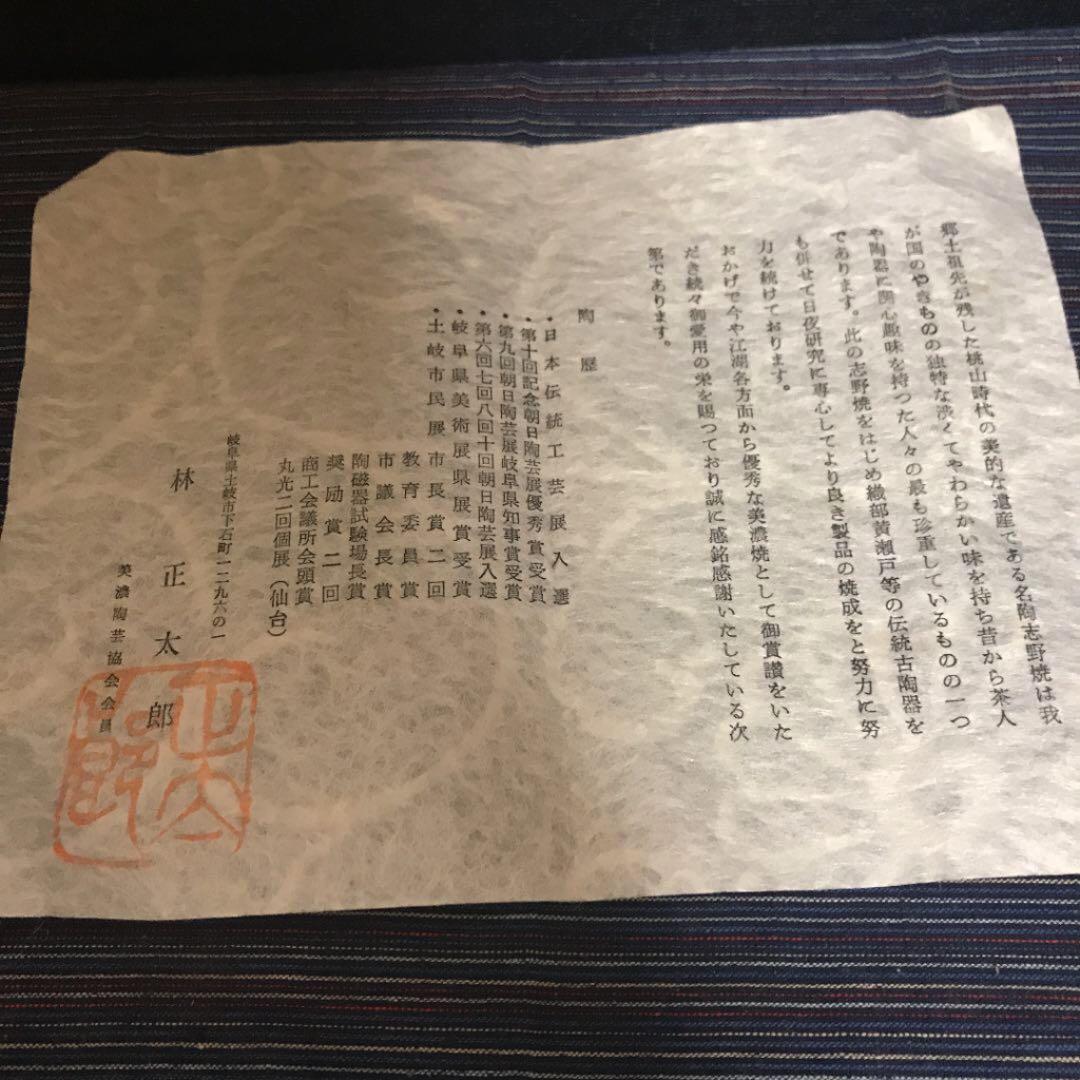 郷土祖先が残した桃山時代の美的な遺産である名陶志野焼は我
が国のやきものの独特な渋くてやわらかい味を持ち昔から茶人
や陶器に関心趣味を持つた人々の最も珍重しているものの一つ
であります。此の志野焼をはじめ織部黄瀬戸等の伝統古陶器を
も併せて日夜研究に専心してより良き製品の焼成をと努力に努
力を続けております。
おかげで今や江湖各方面から優秀な美濃焼として御賞讃をいた
だき続々御愛用の栄を賜つており誠に感銘感謝いたしている次
第であります。
陶歴
・日本伝統工芸展入選
・第十回記念朝日陶芸展優秀賞受賞
・第九回朝日陶芸展岐阜県知事賞受賞
・第六回七回八回十回朝日陶芸展入選
・岐阜県美術展県展賞受賞
・土岐市民展 市長賞二回
教育委員賞
市議会長賞
陶磁器試験場長賞
奨励賞二回
商工会議所会頭賞
丸光二回個展(仙台)
岐阜県土岐市下石町一二九六の一
林正太郎
美濃陶芸協会会員
正太
郎